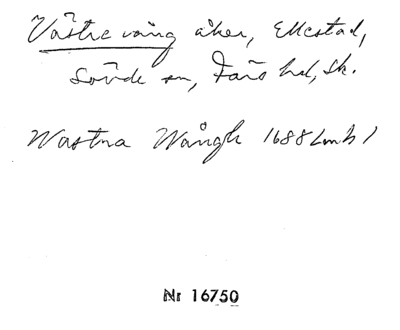 Västre vång åker, Ellestad,
Sövde sn, Färs hd, Sk.
Wästra Wångh 1688 Lmh 1
Nr 16750